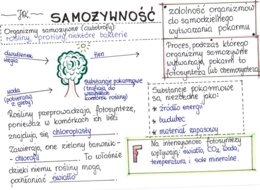 SAMOŻYWNOŚĆ
Organizmy samożywne (autotrofy):
rośliny, protisty, niektóre bakterie
dwutlenek
węgla
tlen
woda
(pobierana
z gleby)
substancje pokarmowe
(trafiają do
wszystkich
komórek rośliny)
Rośliny przeprowadzają fotosyntezę,
ponieważ w komórkach ich liści
znajdują się chloroplasty.
Zawierają one zielony barwnik -
- chlorofil. To właśnie
dzięki niemu rośliny mogą
pochłaniać światło.
zdolność organizmów
do samodzielnego
wytwarzania pokarmu
Proces, podczas którego
organizmy samożywne
wytwarzają pokarm to
fotosynteza (lub chemosynteza).
Substancje pokarmowe
są niezbędne jako:
* źródło energii
* budulec
* materiał zapasowy
F
Na intensywność fotosyntezy
wpływają: światło, CO₂, woda,
temperatura i sole mineralne.